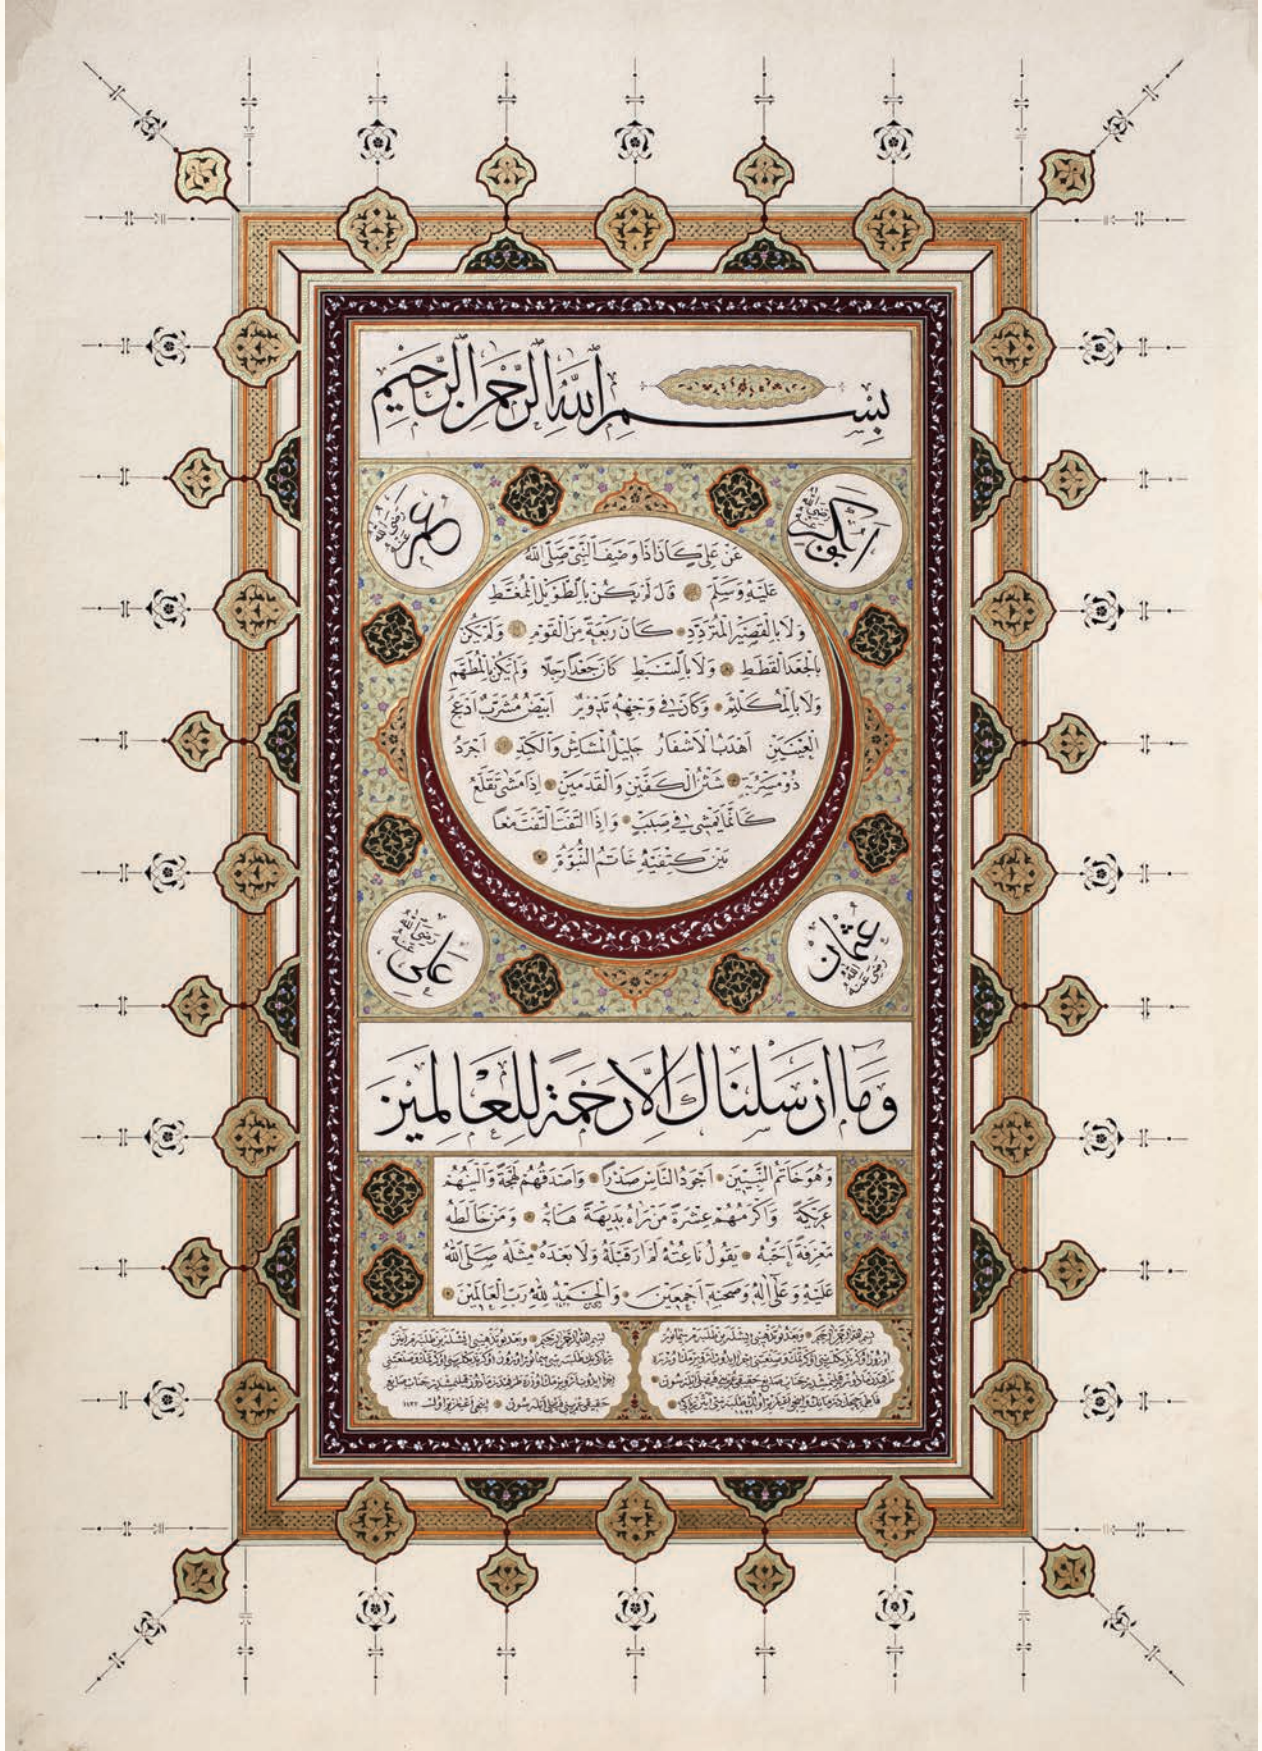 بِسْمِ اللهِ الرَّحْمٰنِ الرَّحِيمِ
ابوبكر رَضِيَ اللهُ عَنْهُ
عمر رَضِيَ اللهُ عَنْهُ
عَنْ عَلِيٍّ كَانَ اِذَا وَصَفَ النَّبِيَّ صَلَّى اللهُ
عَلَيْهِ وَسَلَّمَ قَالَ لَمْ يَكُنْ بِالطَّوِيلِ الْمُمَغَّطِ
وَلَا بِالْقَصِيرِ الْمُتَرَدِّدِ كَانَ رَبْعَةً مِنَ الْقَوْمِ وَلَمْ يَكُنْ
بِالْجَعْدِ الْقَطَطِ وَلَا بِالسَّبْطِ كَانَ جَعْدًا رَجِلًا وَلَمْ يَكُنْ بِالْمُطَهَّمِ
وَلَا بِالْمُكَلْثَمِ وَكَانَ فِي وَجْهِهِ تَدْوِيرٌ اَبْيَضُ مُشْرَبٌ اَدْعَجُ
الْعَيْنَيْنِ اَهْدَبُ الْاَشْفَارِ جَلِيلُ الْمُشَاشِ وَالْكَتَدِ اَجْرَدُ
ذُو مَسْرُبَةٍ شَثْنُ الْكَفَّيْنِ وَالْقَدَمَيْنِ اِذَا مَشَى تَقَلَّعَ
كَاَنَّمَا يَمْشِي فِي صَبَبٍ وَاِذَا الْتَفَتَ الْتَفَتَ مَعًا
بَيْنَ كَتِفَيْهِ خَاتَمُ النُّبُوَّةِ
عُثْمَان رَضِيَ اللهُ عَنْهُ
عَلِي رَضِيَ اللهُ عَنْهُ
وَمَا اَرْسَلْنَاكَ اِلَّا رَحْمَةً لِلْعَالَمِينَ
وَهُوَ خَاتَمُ النَّبِيِّينَ اَجْوَدُ النَّاسِ صَدْرًا وَاَصْدَقُهُمْ لَهْجَةً وَاَلْيَنُهُمْ
عَرِيكَةً وَاَكْرَمُهُمْ عِشْرَةً مَنْ رَاٰهُ بَدِيهَةً هَابَهُ وَمَنْ خَالَطَهُ
مَعْرِفَةً اَحَبَّهُ يَقُولُ نَاعِتُهُ لَمْ اَرَ قَبْلَهُ وَلَا بَعْدَهُ مِثْلَهُ صَلَّى اللهُ
عَلَيْهِ وَعَلٰى اٰلِهِ وَصَحْبِهِ اَجْمَعِينَ وَالْحَمْدُ لِلّٰهِ رَبِّ الْعَالَمِينَ